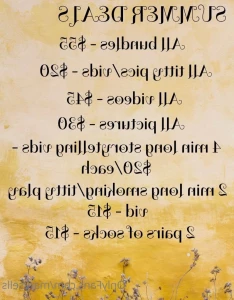 SUMMER DEALS
All bundles - $55
All titty pics/vids - $20
All videos - $45
All pictures - $30
4 min long storytelling vids -
$20/each
2 min long smoking/titty play
vid - $15
2 pairs of socks - $15